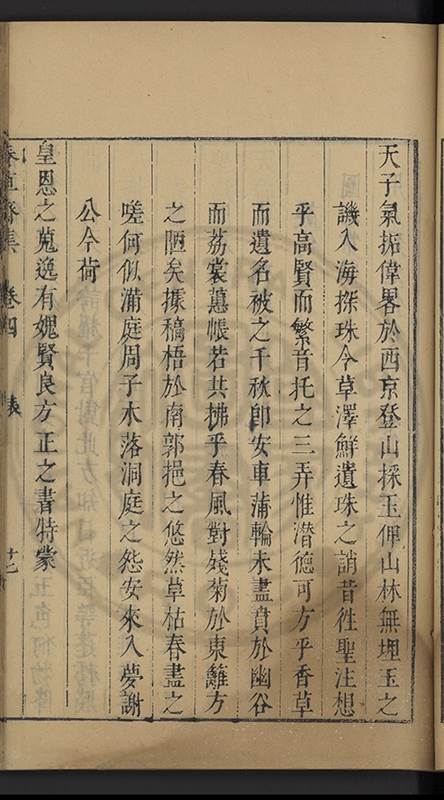 天子氣拓偉畧於西京登山採玉俾山林無埋玉之
譏入海探珠令草澤鮮遺珠之誚昔徃聖注想
乎高賢而繁音托之三弄惟潜德可方乎香草
而遺名被之千秋卽安車蒲輪未盡賁於幽谷
而荔裳蕙帳若共拂乎春風對殘菊於東籬方
之陋矣據稿梧於南郭挹之悠然草枯春盡之
嗟何似滿庭周子木落洞庭之怨安來入夢謝
公今荷
皇恩之蒐逸有媿賢良方正之書特蒙
齋集 卷四 表 十七